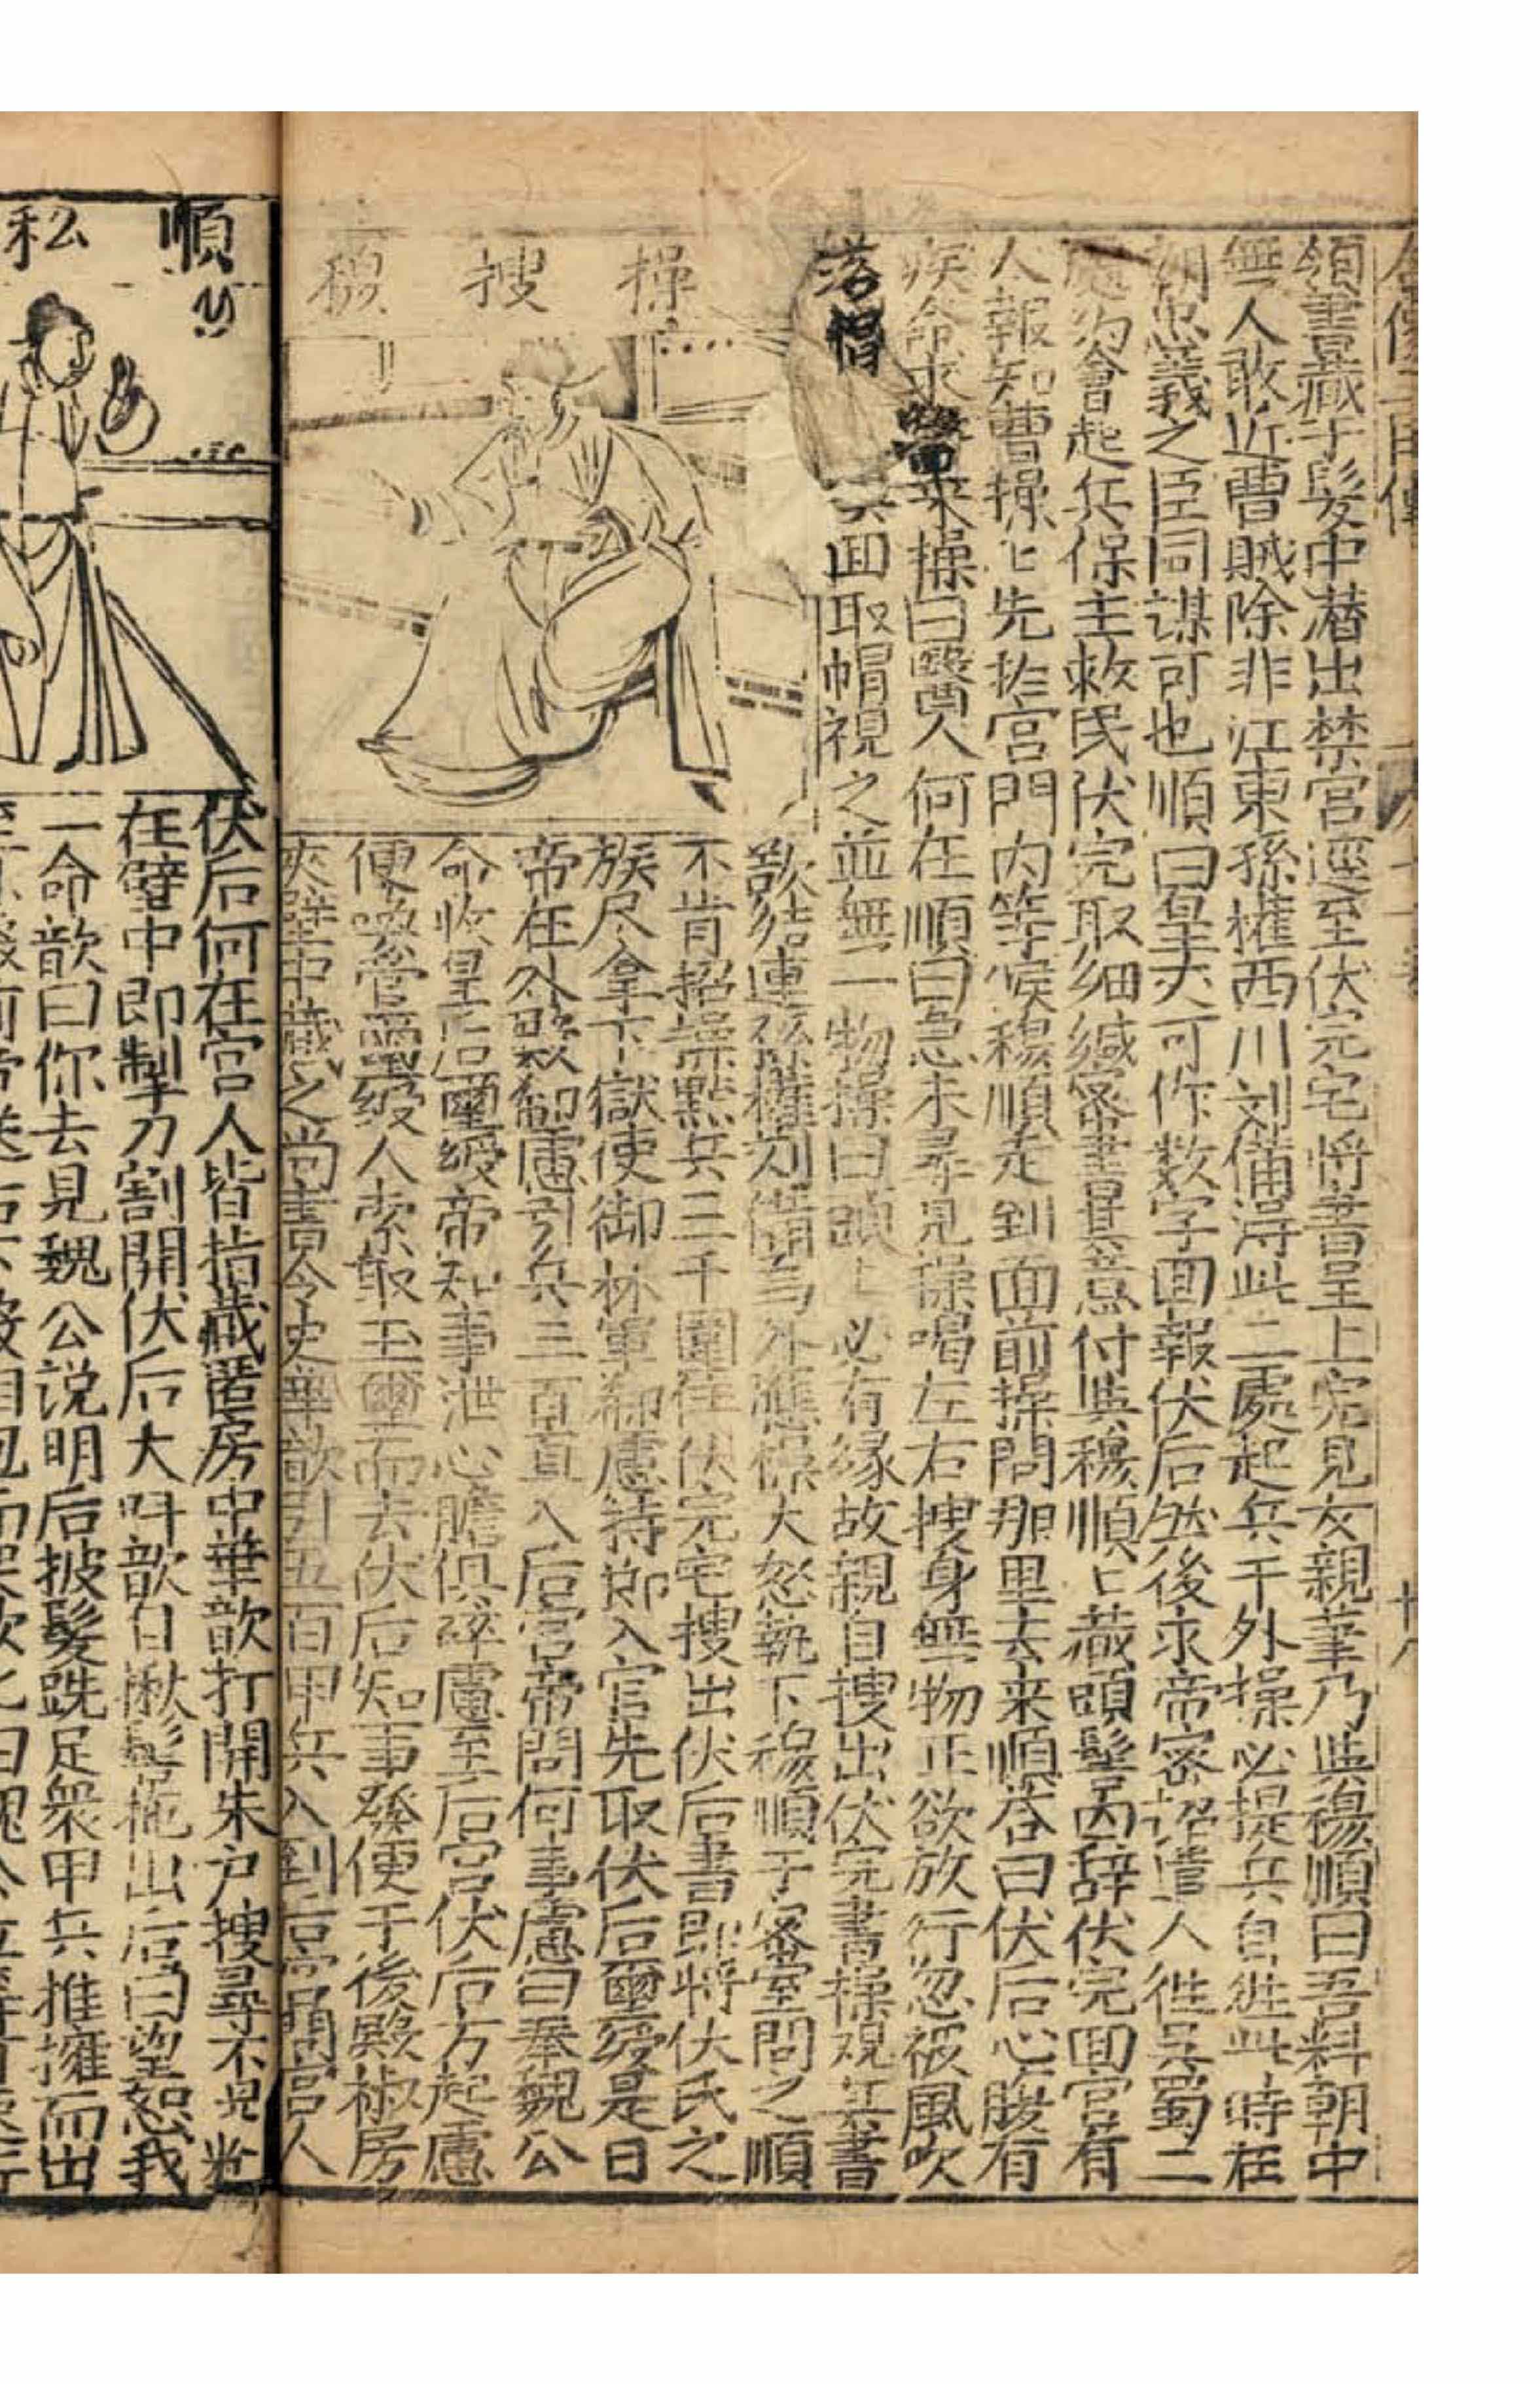 領書藏于髮中潜出禁宮逕至伏完宅將書呈上完見女親筆乃與穆順曰吾料朝中
無人敢近曹賊除非江東孫權西川刘備得此二處起兵于外操必提兵自徃此時在
朝忠義之臣同謀可也順曰皇丈可作数字回報伏后然後求帝密詔遣人徃吳蜀二
處約會起兵保主救民伏完取紙緘密書其意付與穆順〻藏頭髻内辞伏完回宮有
人報知曹操〻先扵宮門内等候穆順走到面前操問那里去来順答曰伏后心腹有
疾命求醫来操曰醫人何在順曰急未尋見操喝左右搜身無物正欲放行忽被風吹
落帽 回取帽視之並無一物操曰頭上必有縁故親自搜出伏完書操視其書
欵結連孫權刘備為外應操大怒執下穆順于密室問之順
不肯招操點兵三千圍住伏完宅搜出伏后書即將伏氏之
族尽拿下獄使御林軍郗慮持節入宮先取伏后璽綬是日
帝在外殿郗慮引兵三百直入后宮帝問何事慮曰奉魏公
命收皇后璽綬帝知事泄心膽俱碎慮至后宮伏后方起慮
便喚管璽綬人索取玉璽而去伏后知事發便于後殿椒房
夾壁中藏之尚書令史華歆引五百甲兵入到后宮問宮人
操
搜
穆
伏后何在宮人皆指藏匿房中華歆打開朱户搜尋不見料
在壁中即掣刀割開伏后大呌歆自揪髻拖出后曰望恕我
一命歆曰你去見魏公説明后披髮跣足衆甲兵推擁而出
順
私